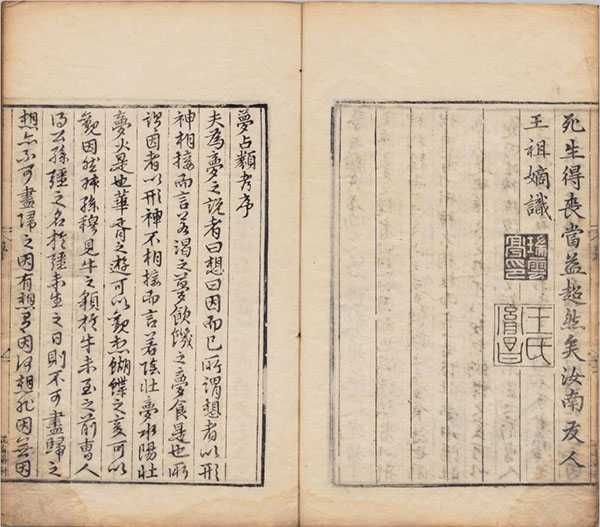 死生得喪當益超然矣汝南友人
王祖嫡識
王氏
胤昌
夢占類考序
夫為夢之說者曰想曰因而已所謂想者以形
神相接而言若渴之夢飲饑之夢食是也所
謂因者以形神不相接而言若陰壯夢水陽壯
夢火是也華胥之遊可以觀想蝴蝶之變可以
觀因然叔孫穆見牛之貌於牛未至之前曹人
得公孫彊之名於彊未生之日則不可盡歸之
想亦不可盡歸之因有想有因何想非因無因